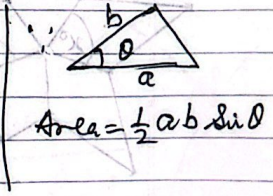 ∵
b
θ
a
Area = ½ ab Sin θ